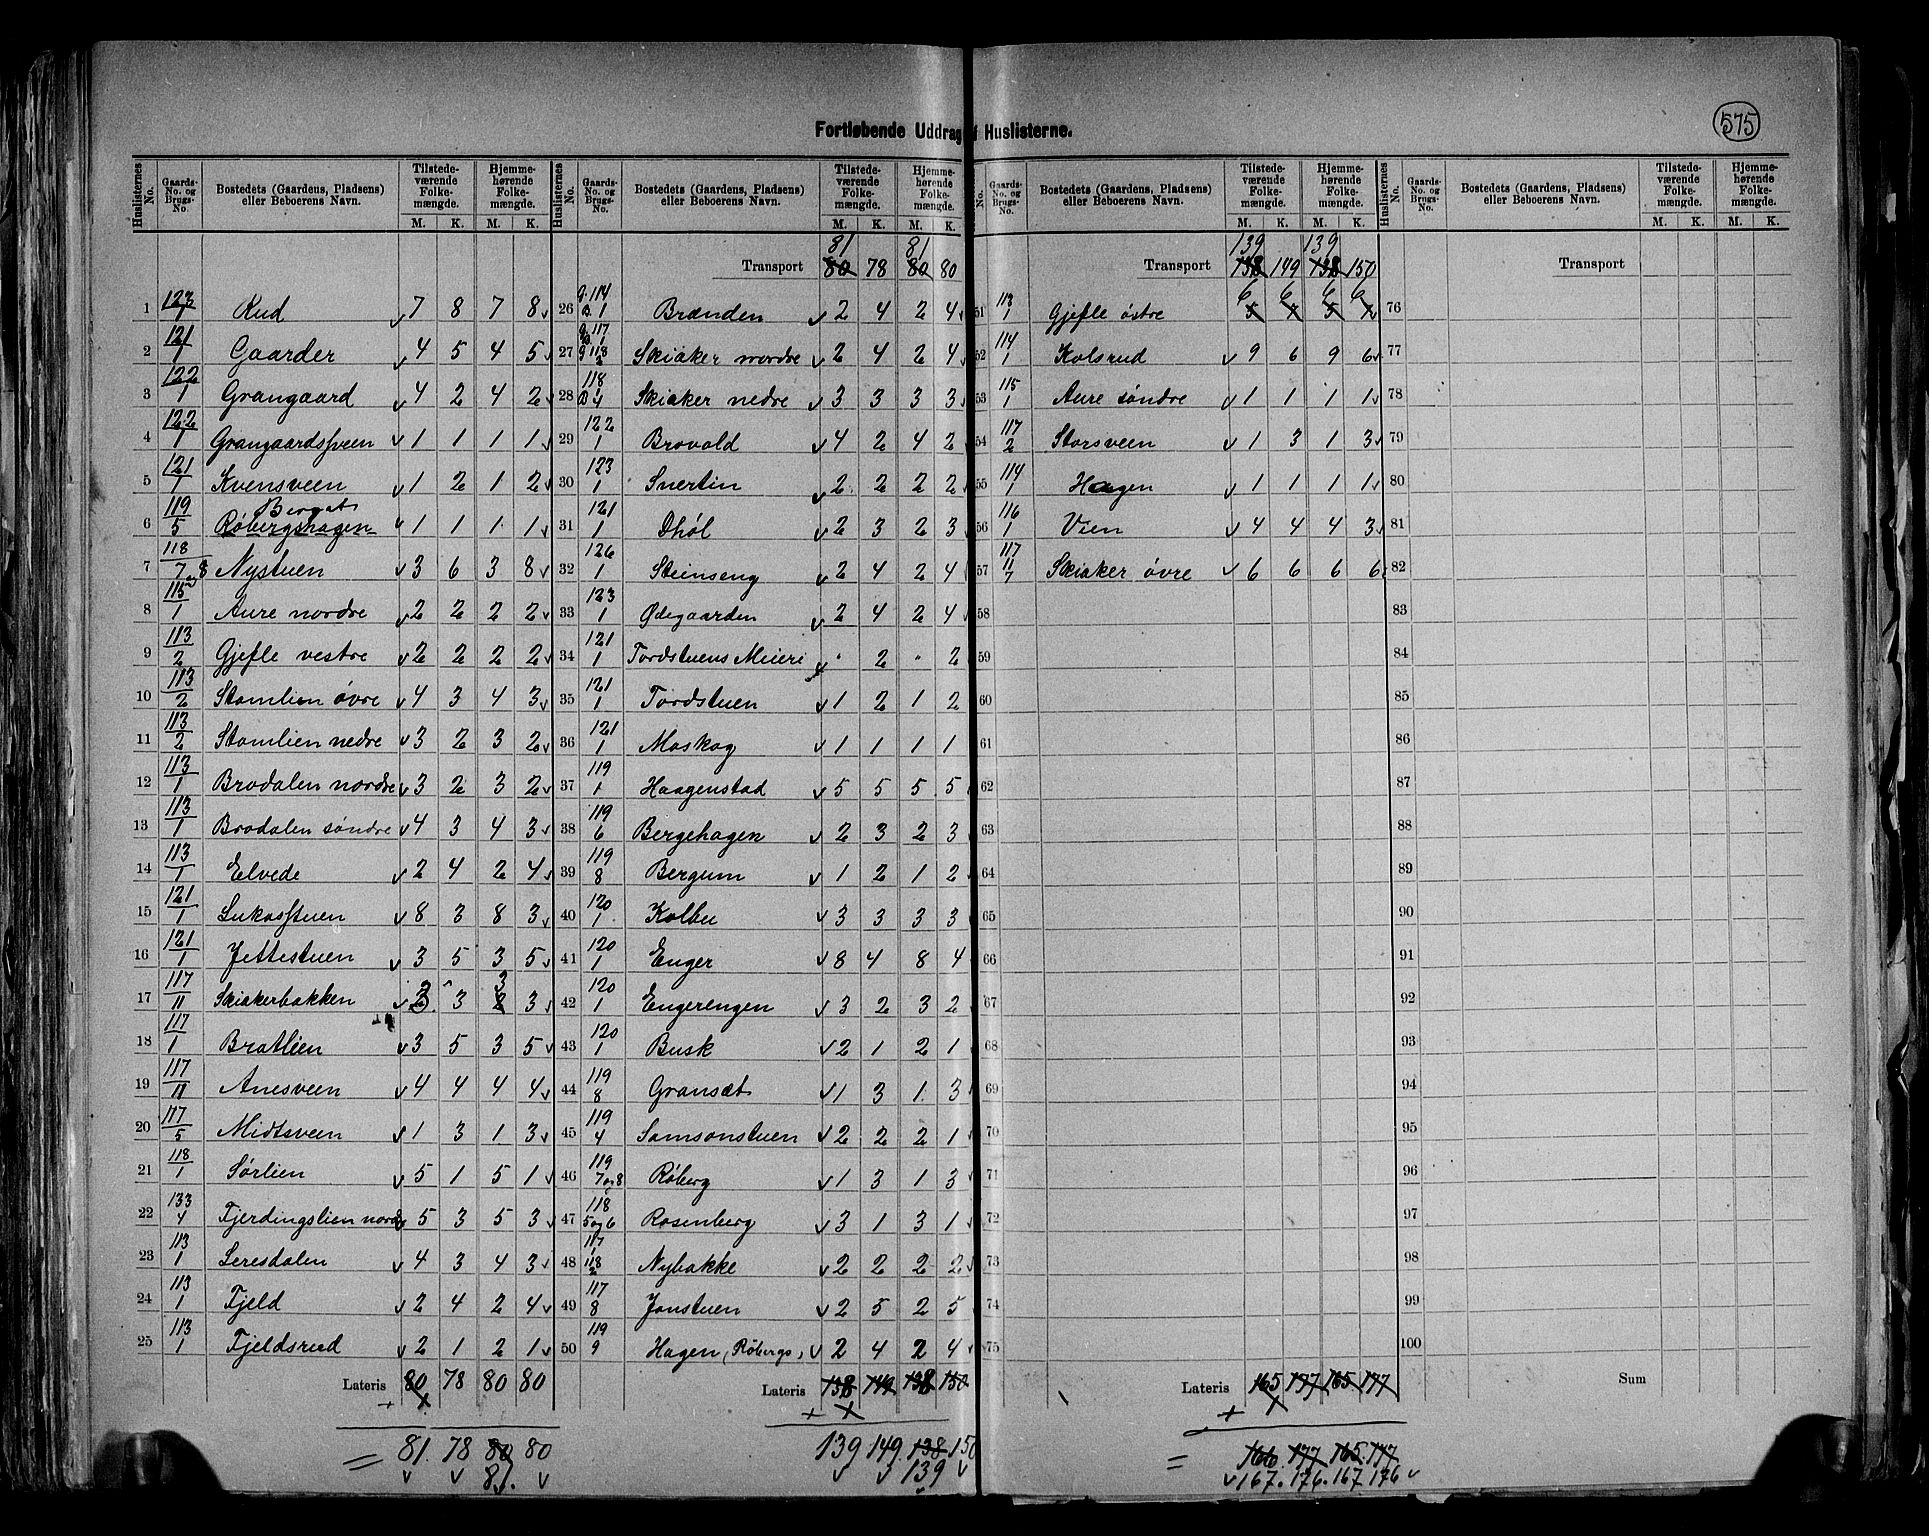 575
Fortløbende Uddrag f Huslisterne.
Huslisternes No. | Gaards-No. og Brugs-No. | Bostedets (Gaardens, Pladsens) eller Beboerens Navn. | Tilstedeværende Folkemængde. M. K. | Hjemmehørende Folkemængde. M. K.
1 123/1 Rud 7 8 7 8
2 121/1 Gaarder 4 5 4 5
3 122/1 Grangaard 4 2 4 2
4 122/1 Grangaardsveen 1 1 1 1
5 121/1 Kvensveen 1 2 1 2
6 119/5 Røbergshagen 1 1 1 1
7 118/7 og 8 Nystuen 3 6 3 8
8 115/1 Aure nordre 2 2 2 2
9 113/2 Gjefle vestre 2 2 2 2
10 113/2 Stomlien øvre 4 3 4 3
11 113/2 Stomlien nedre 3 2 3 2
12 113/1 Brodalen nordre 3 2 3 2
13 113/1 Brodalen søndre 4 3 4 3
14 113/1 Elvede 2 4 2 4
15 121/1 Lukasstuen 8 3 8 3
16 121/1 Jettestuen 3 5 3 5
17 117/11 Skiakerbakken 3 3 3 3
18 117/1 Bratlien 3 5 3 5
19 117/11 Anesveen 4 4 4 4
20 117/5 Midtsveen 1 3 1 3
21 118/1 Sørlien 5 1 5 1
22 133/4 Fjerdingslien nordre 5 3 5 3
23 113/1 Seresdalen 4 3 4 3
24 113/1 Fjeld 2 4 2 4
25 113/1 Fjeldsrud 2 1 2 1
Lateris 80 78 80 80
= 81. 78 80 80
81.
Huslisternes No. | Gaards-No. og Brugs-No. | Bostedets (Gaardens, Pladsens) eller Beboerens Navn. | Tilstedeværende Folkemængde. M. K. | Hjemmehørende Folkemængde. M. K.
81 81
Transport 80 78 80 80
26 G. 114 B. 1 Brænden 2 4 2 4
27 G. 117 B. 1 G 118 2 Skiaker nordre 2 4 2 4
28 118 B 4 Skiaker nedre 3 3 3 3
29 122/1 Brovold 4 2 4 2
30 123/1 Snertin 2 2 2 2
31 121/1 Dhøl 2 3 2 3
32 126/1 Steinseng 2 4 2 4
33 123/1 Ødegaarden 2 4 2 4
34 121/1 Tordstuens Meieri " 2 " 2
35 121/1 Tordstuen 1 2 1 2
36 121/1 Moskog 1 1 1 1
37 119/1 Haagenstad 5 5 5 5
38 119/6 Bergehagen 2 3 2 3
39 119/8 Bergum 1 2 1 2
40 120/1 Kolbu 3 3 3 3
41 120/1 Enger 8 4 8 4
42 120/1 Engerengen 3 2 3 2
43 120/1 Busk 2 1 2 1
44 119/8 Gransæt 1 3 1 3
45 119/4 Samsonstuen 2 2 2 1
46 119/7 og 8 Røberg 1 3 1 3
47 118/5 og 6 Rosenberg 3 1 3 1
48 117/1 118/2 Nybakke 2 2 2 2
49 117/8 Jonstuen 2 5 2 5
50 119/9 Hagen (Røbergs) 2 4 2 4
Lateris 138 149 138 150
139 149. 138 150
139
No. | Gaards-No. og Brugs-No. | Bostedets (Gaardens, Pladsens) eller Beboerens Navn. | Tilstedeværende Folkemængde. M. K. | Hjemmehørende Folkemængde. M. K.
139 139
Transport 138 149 138 150
6 6 6 6
51 113/1 Gjefle østre 5 7 5 7
52 114/1 Kolsrud 9 6 9 6
53 115/1 Aure søndre 1 1 1 1
54 117/2 Storsveen 1 3 1 3
55 114/1 Hagen 1 1 1 1
56 116/1 Vien 4 4 4 3
57 117/11/7 Skiaker øvre 6 6 6 6
58
59
60
61
62
63
64
65
66
67
68
69
70
71
72
73
74
75
Lateris 165 177 165 177
= 166. 177. 165. 177
167. 176. 167. 176
Huslisternes No. | Gaards-No. og Brugs-No. | Bostedets (Gaardens, Pladsens) eller Beboerens Navn. | Tilstedeværende Folkemængde. M. K. | Hjemmehørende Folkemængde. M. K.
Transport
76
77
78
79
80
81
82
83
84
85
86
87
88
89
90
91
92
93
94
95
96
97
98
99
100
Sum